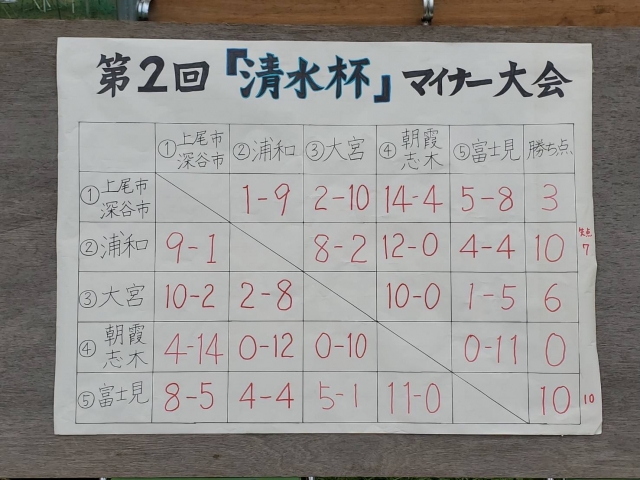 第2回『清水杯』マイナー大会
①上尾市 深谷市 ②浦和 ③大宮 ④朝霞 志木 ⑤富士見 勝ち点
①上尾市 深谷市 1-9 2-10 14-4 5-8 3
②浦和 9-1 8-2 12-0 4-4 10 失点 7
③大宮 10-2 2-8 10-0 1-5 6
④朝霞 志木 4-14 0-12 0-10 0-11 0
⑤富士見 8-5 4-4 5-1 11-0 10 10